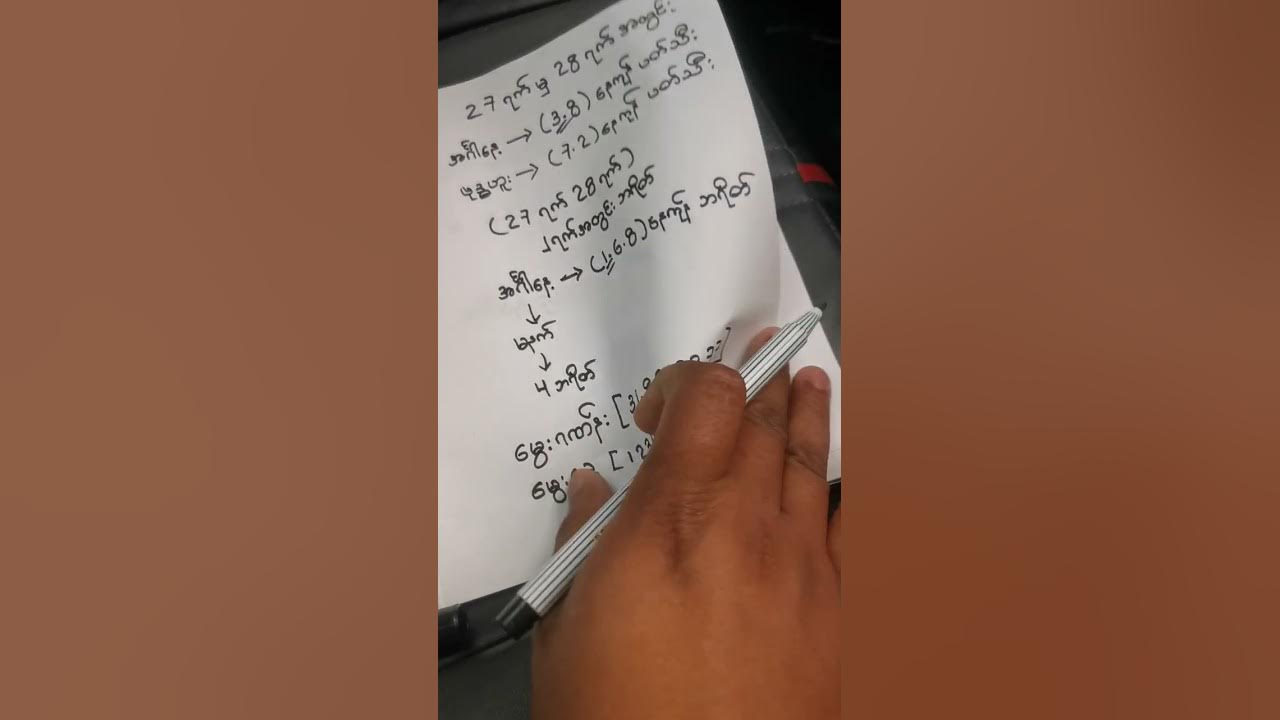 27 ရက် မှ 28 ရက် အတွင်း
အင်္ဂါနေ့ → (3.8) နေ့ကျန် ပတ်သီး
ဗုဒ္ဓဟူး → (7.2) နေ့ကျန် ပတ်သီး
(27 ရက် 28 ရက်)
၂ရက်အတွင်း ဘရိတ်
အင်္ဂါနေ့ → (1.6.8) နေ့ကျန် ဘရိတ်
↓
မနက်
↓
4 ဘရိတ်
မွေးဂဏန်း [31
မွေး [12